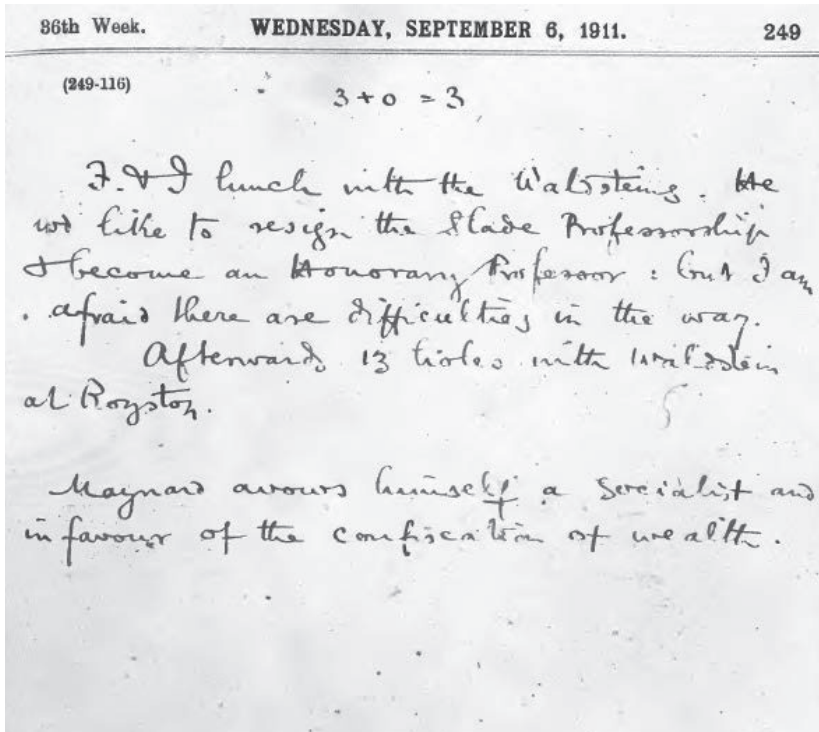 36th Week. WEDNESDAY, SEPTEMBER 6, 1911. 249
(249-116)
3 + 0 = 3
F. & I lunch with the Waldsteins. He
wd like to resign the Slade Professorship
& become an Honorary Professor : but I am
afraid there are difficulties in the way.
Afterwards 13 holes with Waldstein
at Royston.
Maynard avows himself a Socialist and
in favour of the confiscation of wealth.